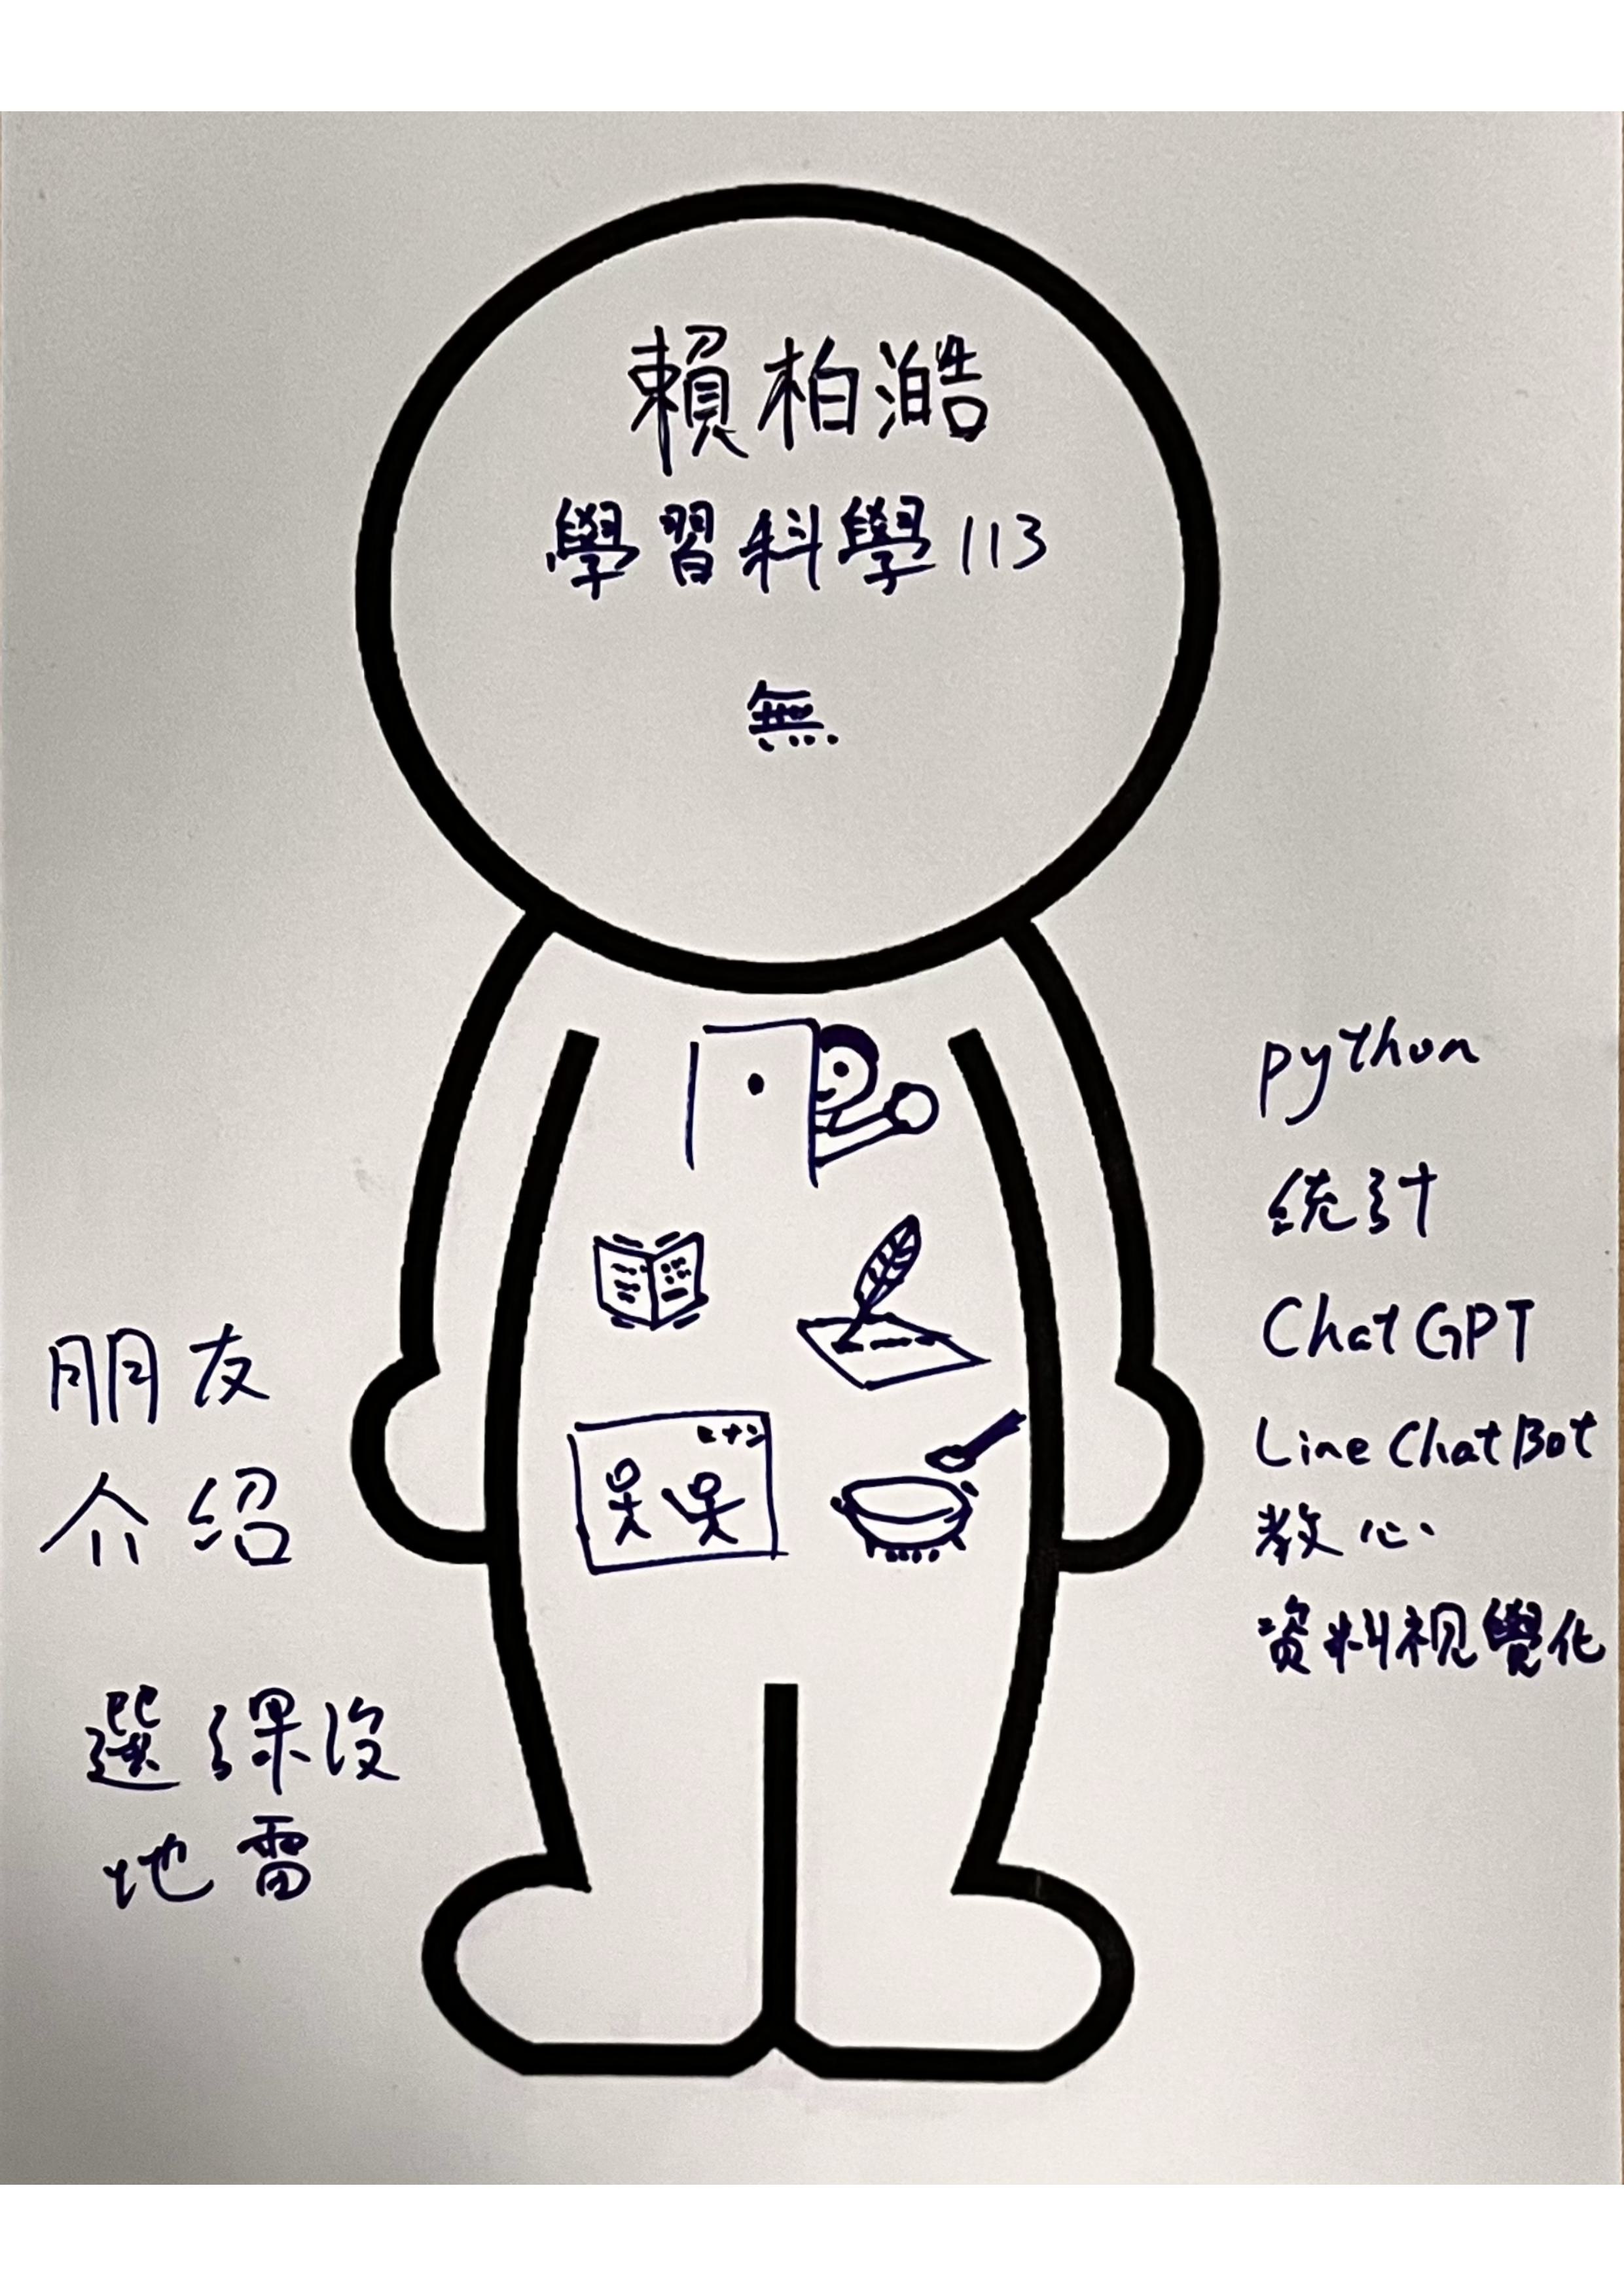 賴柏澔
學習科學113
無
朋友
介紹
選課沒
地雷
python
統計
ChatGPT
Line ChatBot
教心
資料視覺化